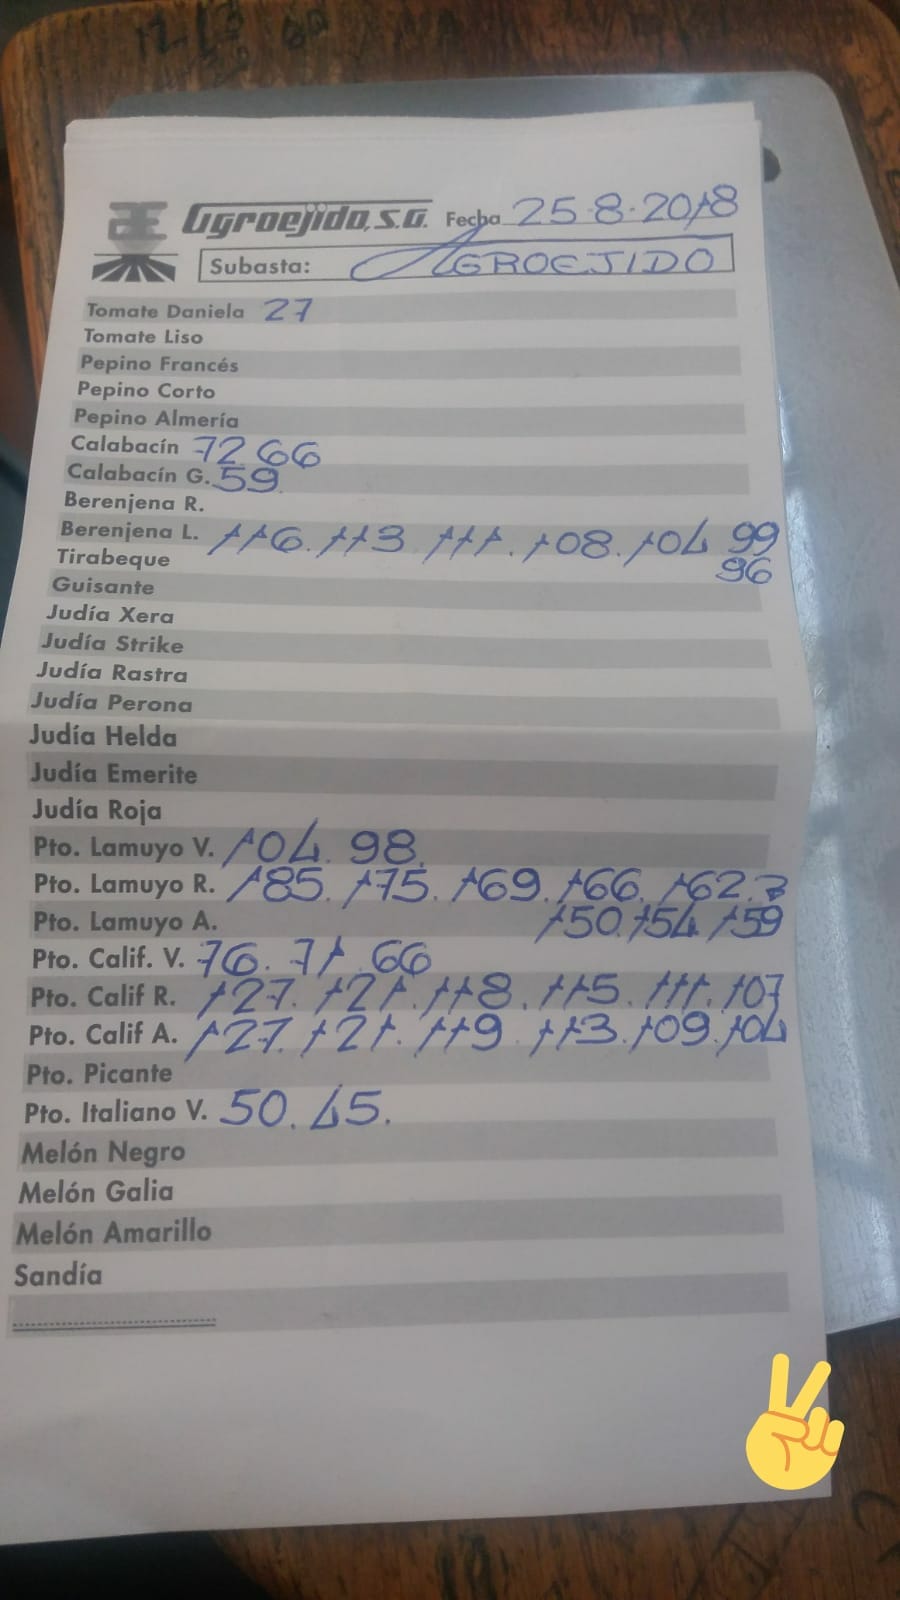 Agroejido, S.A. Fecha 25-8-2018
Subasta: AGROEJIDO
Tomate Daniela 27
Tomate Liso
Pepino Francés
Pepino Corto
Pepino Almería
Calabacín 72. 66
Calabacín G. 59
Berenjena R.
Berenjena L. 116. 113 111. 108. 104 99
96
Tirabeque
Guisante
Judía Xera
Judía Strike
Judía Rastra
Judía Perona
Judía Helda
Judía Emerite
Judía Roja
Pto. Lamuyo V. 104. 98.
Pto. Lamuyo R. 185. 175. 169. 166. 162.
150. 154. 159
Pto. Lamuyo A.
Pto. Calif. V. 76. 71. 66
Pto. Calif R. 127. 121. 118. 115. 111. 107
Pto. Calif A. 127. 121. 119. 113. 109. 104
Pto. Picante
Pto. Italiano V. 50. 45.
Melón Negro
Melón Galia
Melón Amarillo
Sandía